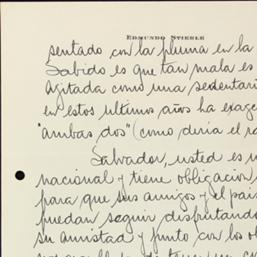 EDMUNDO STIERLE
sentado con la pluma en la
Sabido es que tan mala es
agitada como una sedentari
en estos ultimos años ha exag
"ambas dos" (como diria el r
Salvador, usted es u
nacional y tiene obligacion
para que sus amigos y el pais
puedan seguir disfrutando
su amistad y punto con los ob